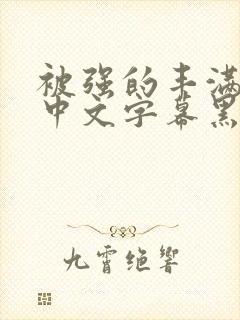 被强的丰满
中文字幕黑
九霄绝响